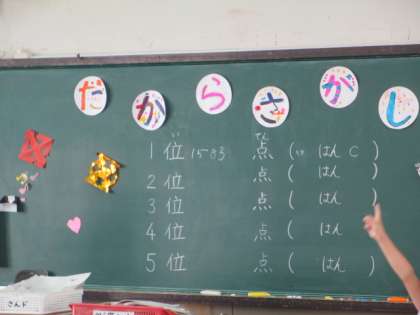 だからさがし
てん
1位 1583 点 ( はん C )
2位 点 ( はん )
3位 点 ( はん )
4位 点 ( はん
5位 点 ( はん )
さんド